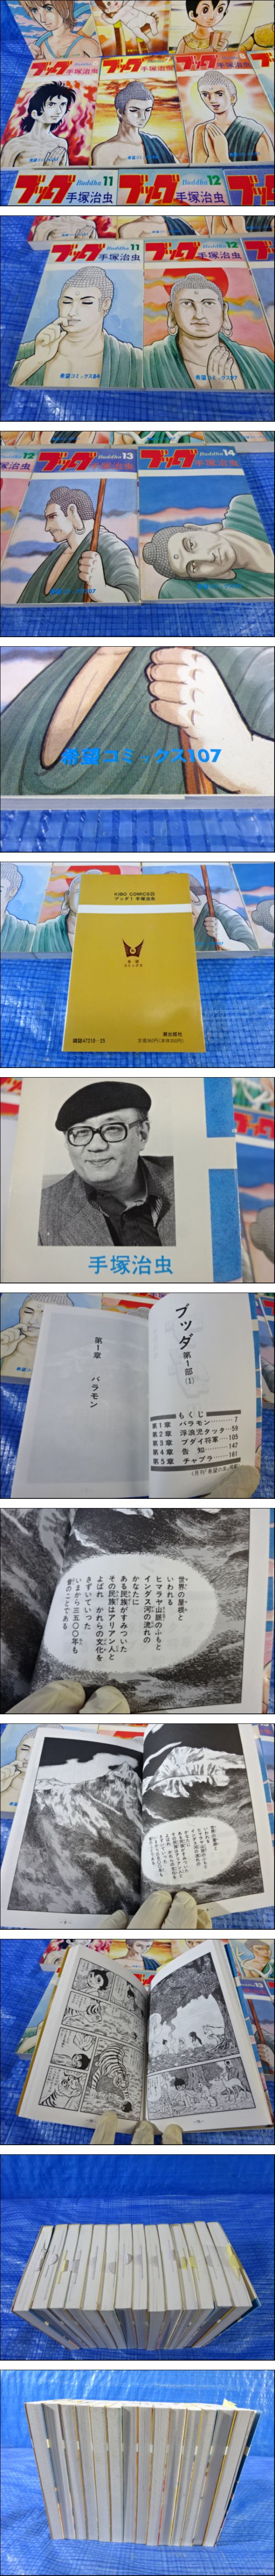 ブッダ
手塚治虫
ブッダ
手塚治虫
ブッダ
手塚治虫
ブッダ Buddha 11
手塚治虫
ブッダ Buddha 12
手塚治虫
ブッダ Buddha 11
手塚治虫
希望コミックス84
ブッダ Buddha 12
手塚治虫
ブッダ Buddha 13
手塚治虫
ブッダ Buddha 14
手塚治虫
希望コミックス107
KIBO COMICS
ブッダ 1 手塚治虫
希望
コミックス
潮出版社
雑誌47210-25
手塚治虫
第1章 バラモン
ブッダ 第1部(1)
もくじ
第1章 バラモン……7
第2章 浮浪児タッタ…59
第3章 ブダイ将軍……105
第4章 告 知……147
第5章 チャプラ……181
世界の屋根と
いわれる
ヒマラヤ山脈のふもと
インダス河の流れの
かなたに
ある民族がすみついた
その民族はアリアン人と
よばれ かれらの文化を
きずいていった
いまから三五〇〇年も
昔のことである